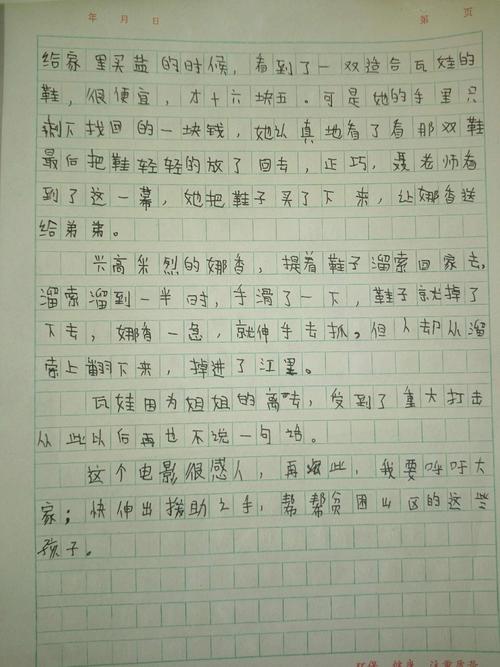 年 月 日 第 页
给家里买盐的时候，看到了一双适合瓦娃的
鞋，很便宜，才十六块五。可是她的手里只
剩下找回的一块钱，她认真地看了看那双鞋
最后把鞋轻轻的放了回去，正巧，聂老师看
到了这一幕，她把鞋子买了下来，让娜香送
给弟弟。
兴高采烈的娜香，提着鞋子溜索回家去，
溜索溜到一半时，手滑了一下，鞋子就掉了
下去，娜香一急，就伸手去抓。但人却从溜
索上翻下来，掉进了江里。
瓦娃因为姐姐的离去，受到了重大打击
从此以后再也不说一句话。
这个电影很感人，再次，我要呼吁大
家；快伸出援助之手，帮帮贫困山区的这些
孩子。
环保 健康